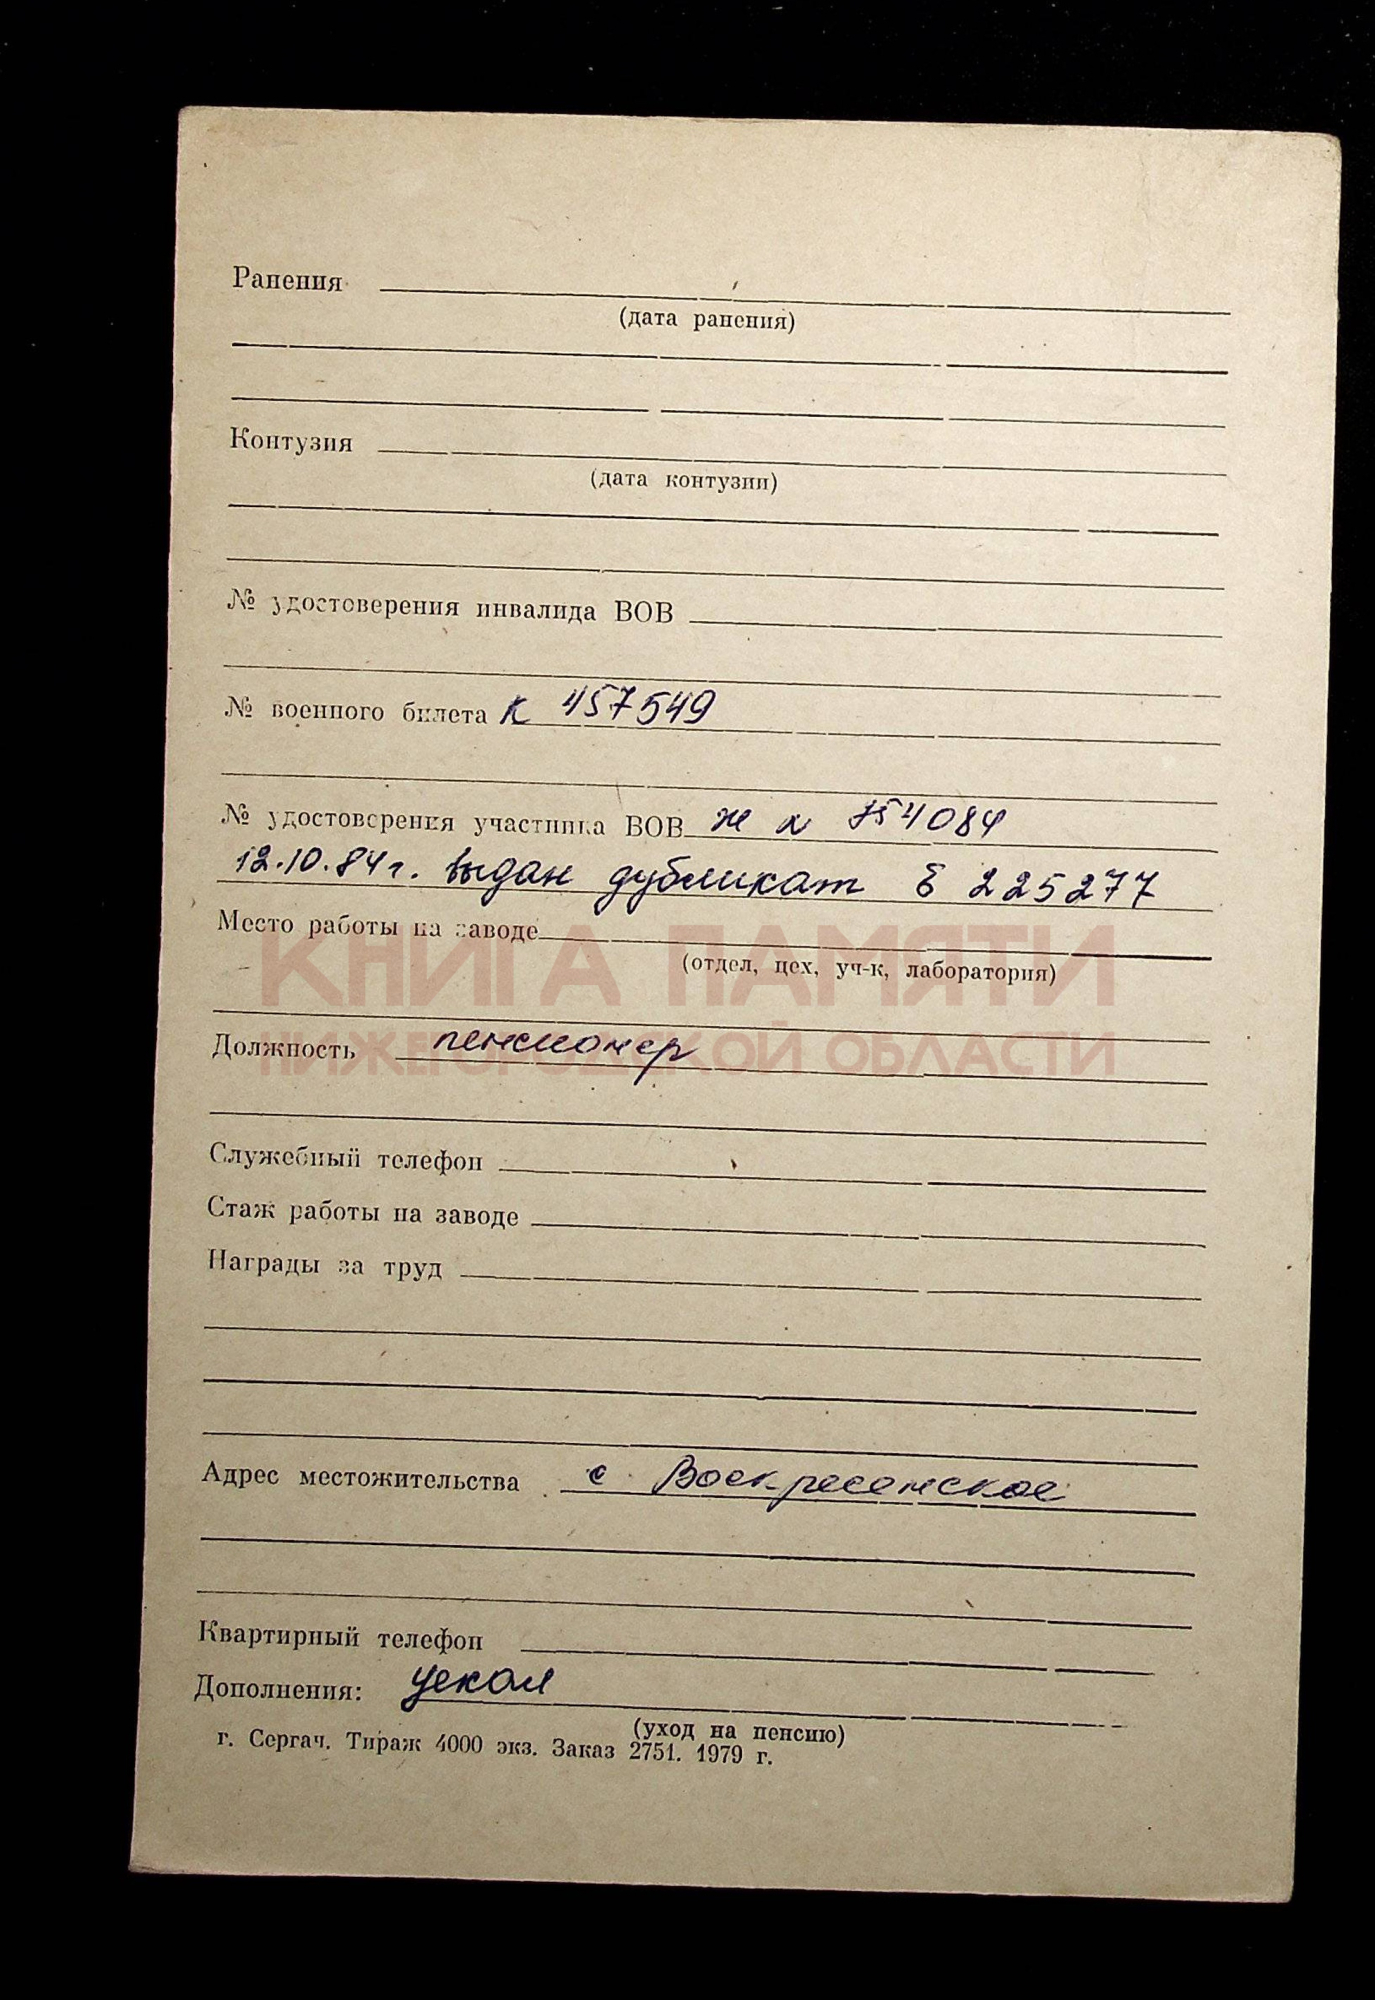 Ранения
(дата ранения)
Контузия
(дата контузии)
№ удостоверения инвалида ВОВ
№ военного билета К 457549
№ удостоверения участника ВОВ Ж № 754084
12.10.84 г. выдан дубликат Б 225277
Место работы на заводе
(отдел, цех, уч-к, лаборатория)
КНИГА ПАМЯТИ
НИЖЕГОРОДСКОЙ ОБЛАСТИ
Должность пенсионер
Служебный телефон
Стаж работы на заводе
Награды за труд
Адрес местожительства с Воскресенское
Квартирный телефон
Дополнения:
(уход на пенсию)
г. Сергач. Тираж 4000 экз. Заказ 2751. 1979 г.